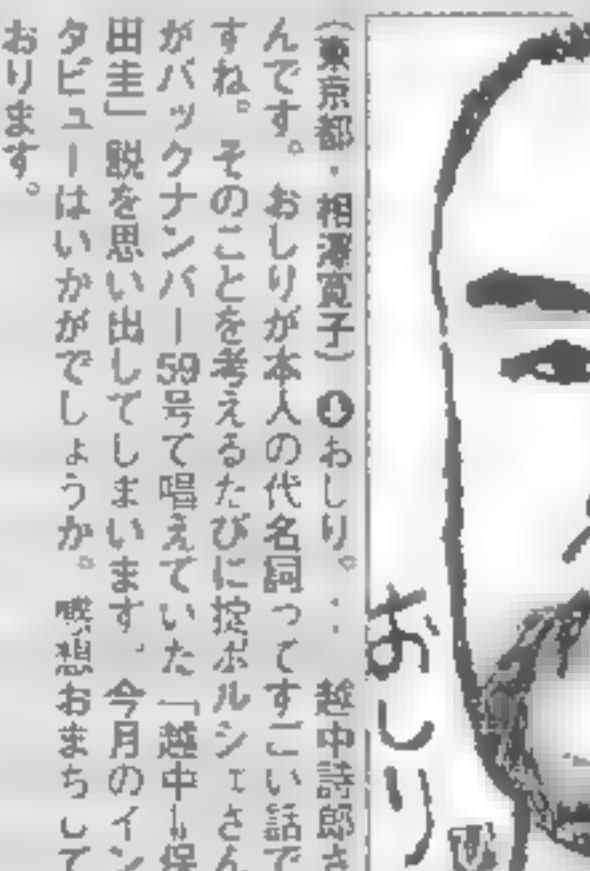 （東京都・相澤寛子）おしり。‥　越中詩郎さ
んです。おしりが本人の代名詞ってすごい話で
すね。そのことを考えるたびに掟ポルシェさん
がバックナンバー59号て唱えていた「越中＝保
田圭」説を思い出してしまいます。今月のイン
タビューはいかがでしょうか。感想おまちして
おります。
おしり